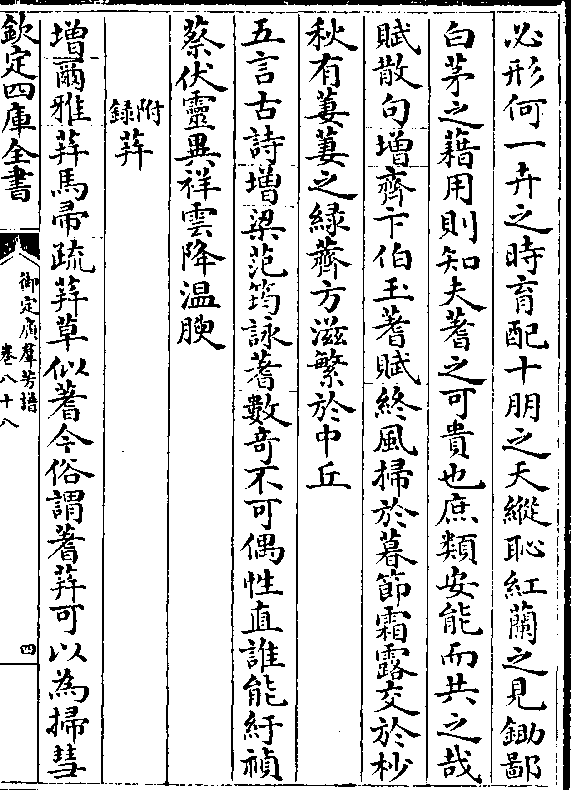 必形何一卉之時育配十朋之天縱恥紅蘭之見鋤鄙
白茅之藉用則知夫蓍之可貴也庶類安能而共之哉
賦散句增齊卞伯玉蓍賦終風掃於暮節霜露交於杪
秋有萋萋之緑薺方滋繁於中丘
五言古詩增梁范筠詠蓍數竒不可偶性直誰能紆禎
蔡伏靈異祥雲降温腴
附録荓
增爾雅荓馬帚疏荓草似蓍今俗謂蓍荓可以為掃彗
欽定四庫全書
御定廣羣芳譜
卷八十八
四